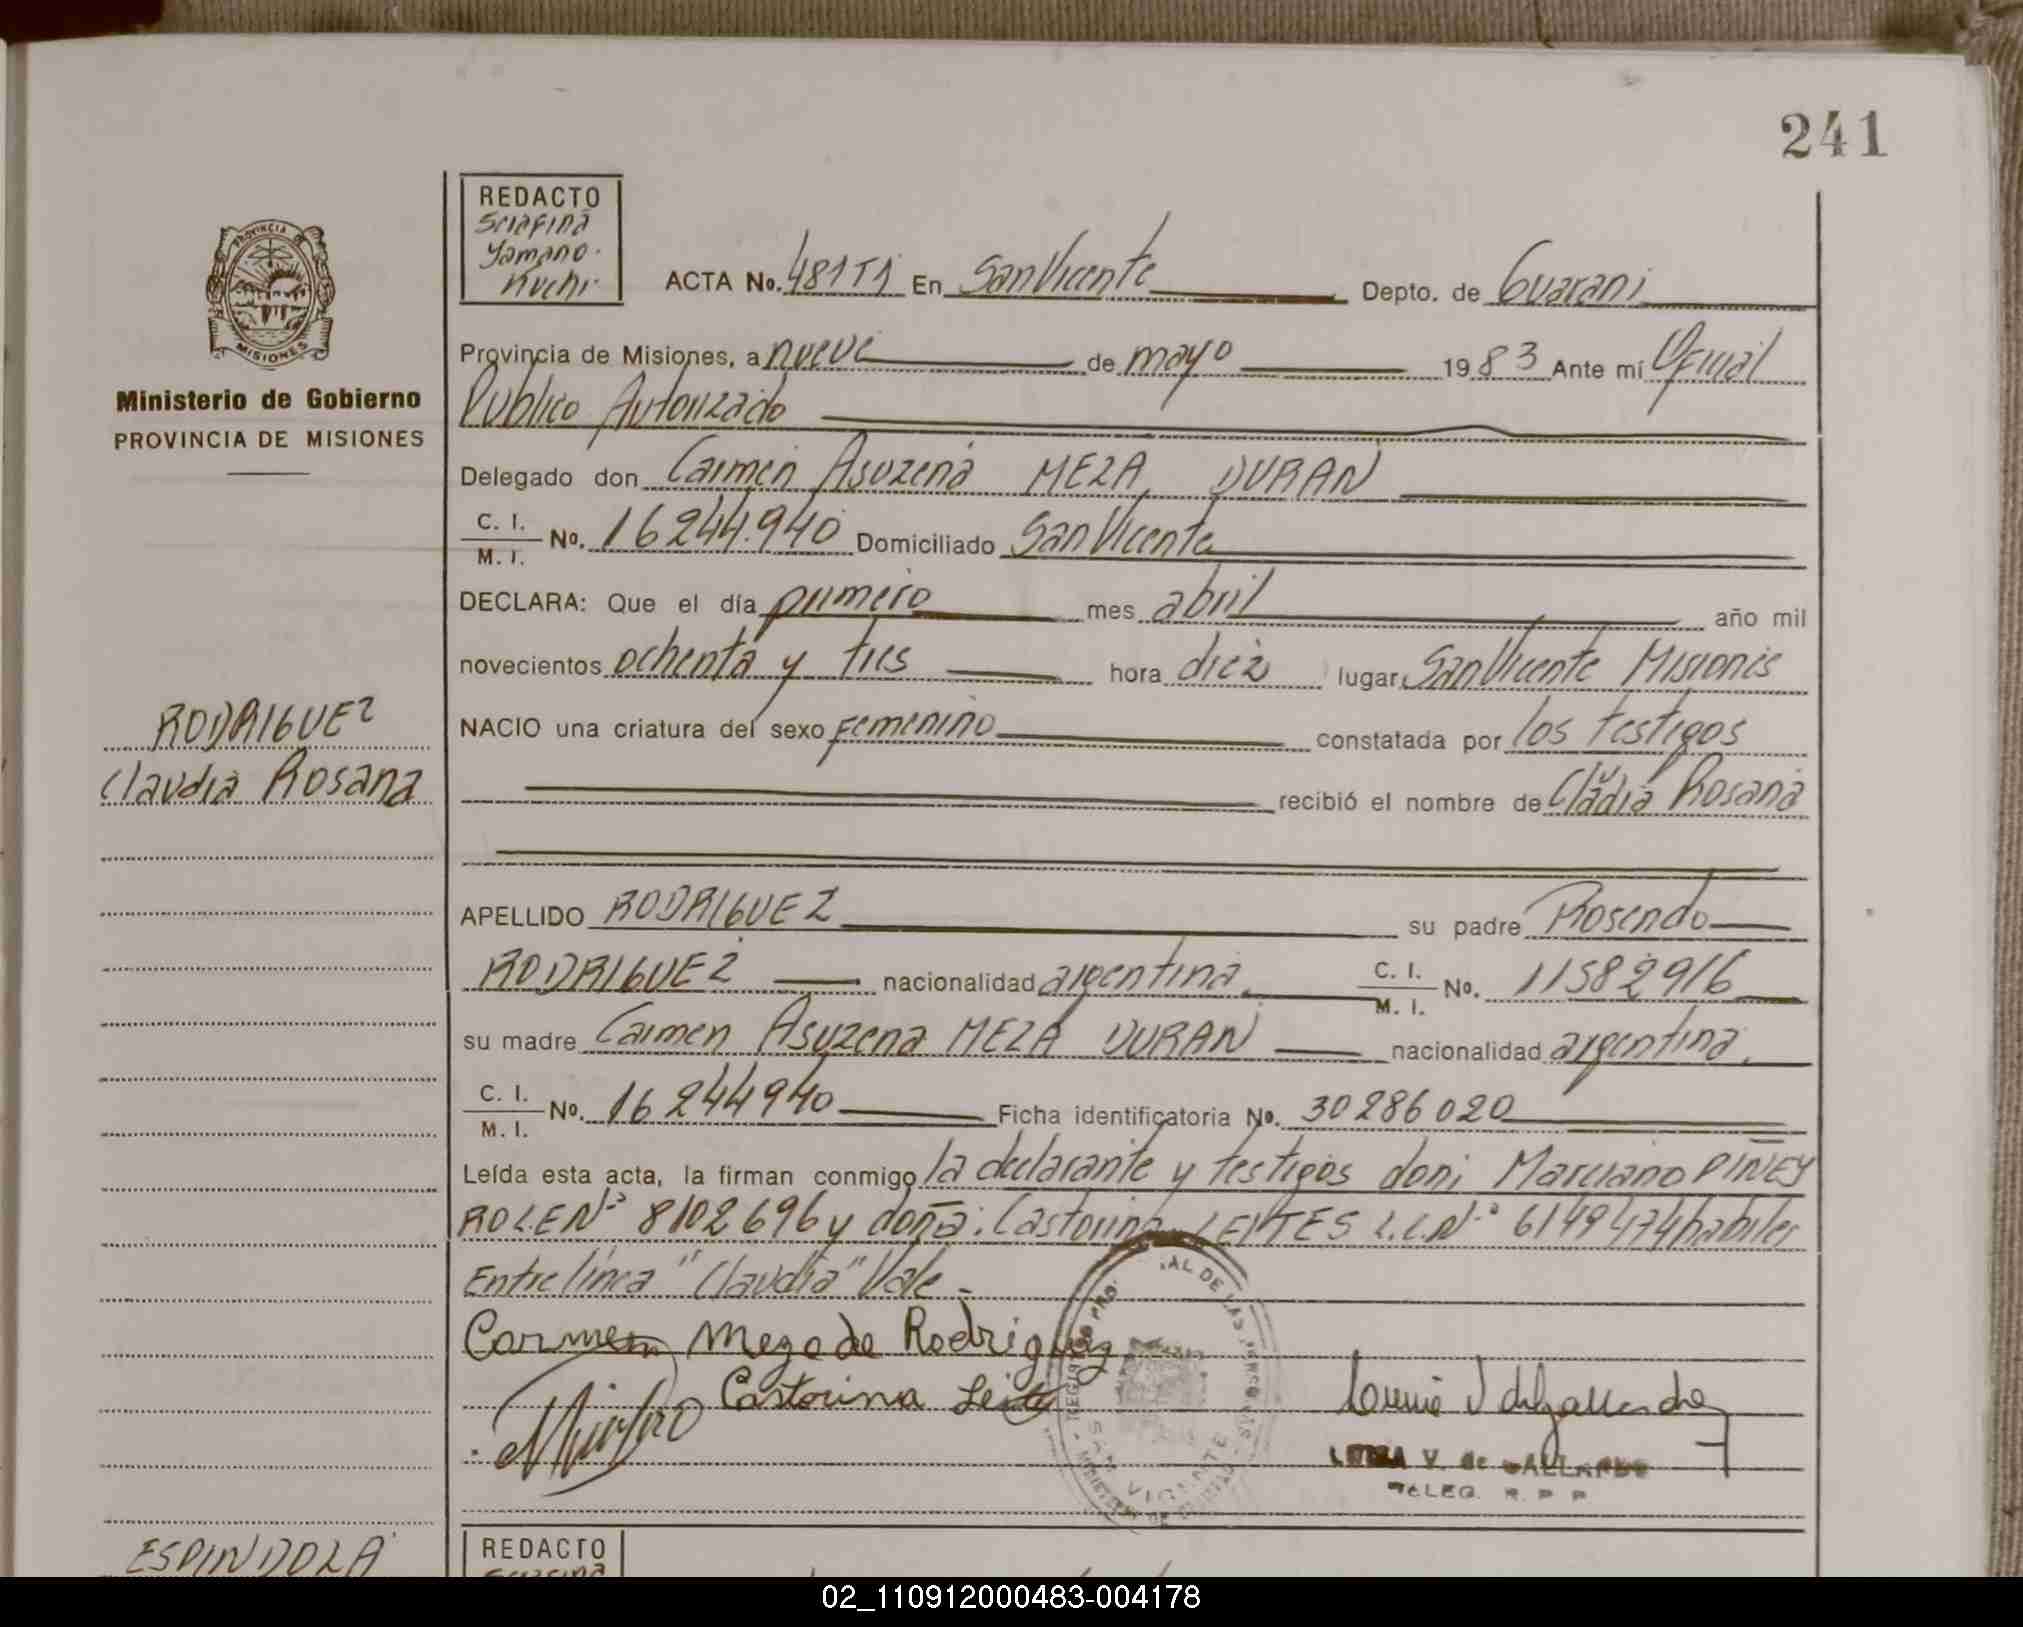 241
REDACTO
Serafina
Yamano.
Kuchi.
PROVINCIA DE
MISIONES
Ministerio de Gobierno
PROVINCIA DE MISIONES
ACTA No. 481T1 En San Vicente Depto. de Guarani
Provincia de Misiones, a nueve de mayo 1983 Ante mí Oficial
Publico Autorizado
Delegado don Carmen Asuzena MEZA DURAN
C. I.
M. I. No. 16244.940 Domiciliado San Vicente
DECLARA: Que el día primero mes abril año mil
novecientos ochenta y tres hora diez lugar San Vicente Misiones
NACIO una criatura del sexo Femenino constatada por los testigos
RODRIGUEZ
Claudia Rosana
u
recibió el nombre de Cladia Rosana
APELLIDO RODRIGUEZ su padre Rosendo
RODRIGUEZ nacionalidad argentina. C. I. M. I. No. 11582916
su madre Carmen Asuzena MEZA DURAN nacionalidad argentina.
C. I.
M. I. No. 16244940 Ficha identificatoria No. 30286020
Leída esta acta, la firman conmigo la declarante y testigos don; Marciano PINEY
RO L.E Nº 8102696 y doña: Castorina LEITES L.C.Nº 6149474 habiles
Entre linea "Claudia" Vale-
Carmen Meza de Rodriguez
Castorina Leites
AL DE LAS PERSONAS
SAN VICENTE
V. de GALLARDO
DELEG. R. P. P.
ESPINDOLA
REDACTO
Serafina
02_110912000483-004178